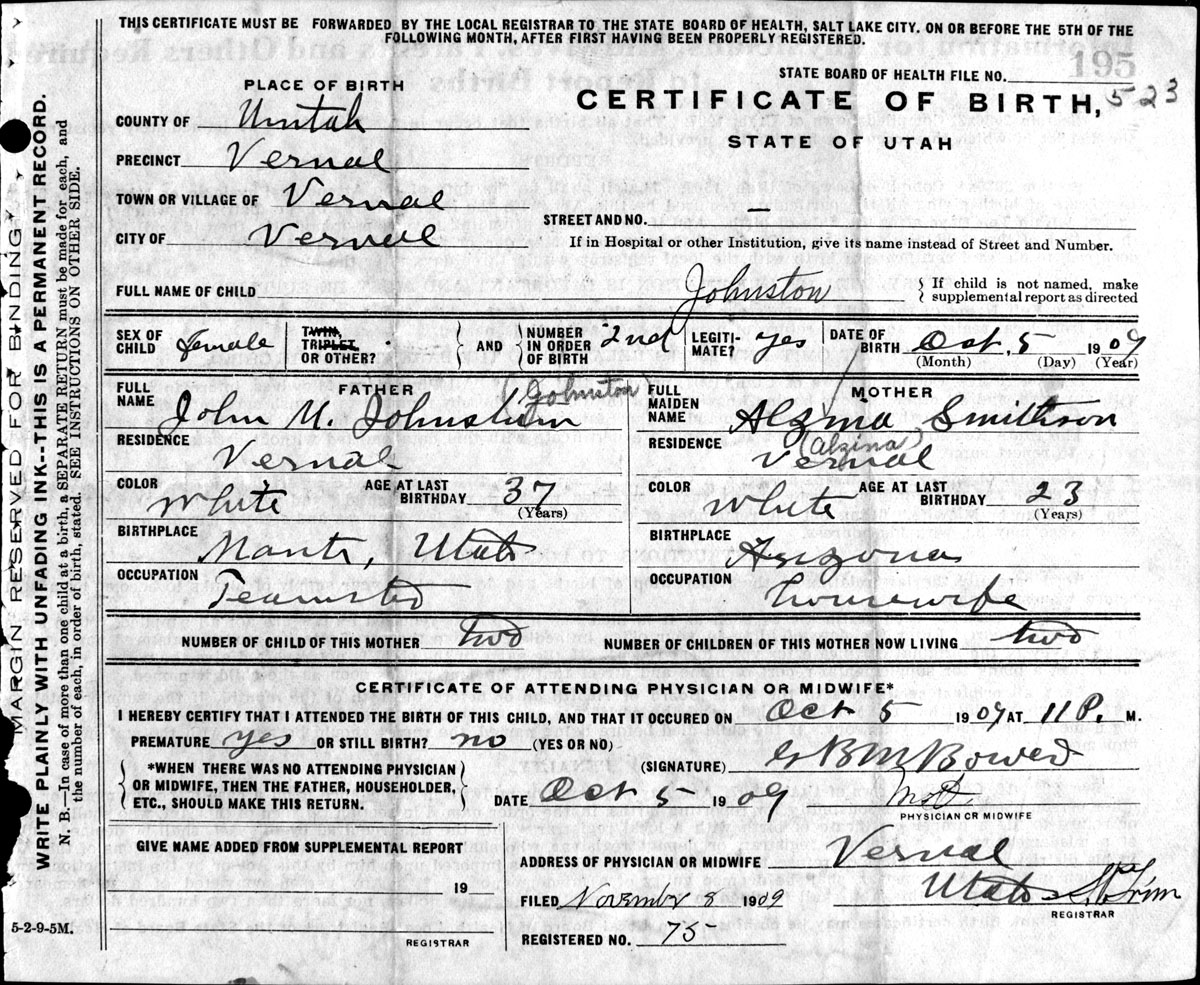 THIS CERTIFICATE MUST BE FORWARDED BY THE LOCAL REGISTRAR TO THE STATE BOARD OF HEALTH, SALT LAKE CITY. ON OR BEFORE THE 5TH OF THE
FOLLOWING MONTH, AFTER FIRST HAVING BEEN PROPERLY REGISTERED.
STATE BOARD OF HEALTH FILE NO. 195
523
PLACE OF BIRTH
CERTIFICATE OF BIRTH,
STATE OF UTAH
COUNTY OF Uintah
PRECINCT Vernal
TOWN OR VILLAGE OF Vernal
STREET AND NO. —
CITY OF Vernal
If in Hospital or other Institution, give its name instead of Street and Number.
FULL NAME OF CHILD Johnston
If child is not named, make
supplemental report as directed
SEX OF CHILD female
TWIN, TRIPLET, OR OTHER?
AND NUMBER IN ORDER OF BIRTH 2nd
LEGITIMATE? yes
DATE OF BIRTH Oct. 5 1909
(Month) (Day) (Year)
FATHER
FULL NAME John M. Johnstun (Johnston)
RESIDENCE Vernal
COLOR White
AGE AT LAST BIRTHDAY 37
(Years)
BIRTHPLACE Manti, Utah
OCCUPATION Teamster
MOTHER
FULL MAIDEN NAME Alzma Smithson
(Alzina)
RESIDENCE Vernal
COLOR White
AGE AT LAST BIRTHDAY 23
(Years)
BIRTHPLACE Arizona
OCCUPATION Housewife
NUMBER OF CHILD OF THIS MOTHER two
NUMBER OF CHILDREN OF THIS MOTHER NOW LIVING two
CERTIFICATE OF ATTENDING PHYSICIAN OR MIDWIFE*
I HEREBY CERTIFY THAT I ATTENDED THE BIRTH OF THIS CHILD, AND THAT IT OCCURED ON Oct 5 1909 AT 11 P. M.
PREMATURE yes OR STILL BIRTH? no (YES OR NO)
(SIGNATURE)
*WHEN THERE WAS NO ATTENDING PHYSICIAN
OR MIDWIFE, THEN THE FATHER, HOUSEHOLDER,
ETC., SHOULD MAKE THIS RETURN.
DATE Oct 5 1909
PHYSICIAN OR MIDWIFE
GIVE NAME ADDED FROM SUPPLEMENTAL REPORT
19
REGISTRAR
ADDRESS OF PHYSICIAN OR MIDWIFE Vernal
Utah
FILED November 8 1909
REGISTRAR
REGISTERED NO. 75
5-2-9-5M.
MARGIN RESERVED FOR BINDING
WRITE PLAINLY WITH UNFADING INK--THIS IS A PERMANENT RECORD.
N. B.—In case of more than one child at a birth, a SEPARATE RETURN must be made for each, and
the number of each, in order of birth, stated. SEE INSTRUCTIONS ON OTHER SIDE.